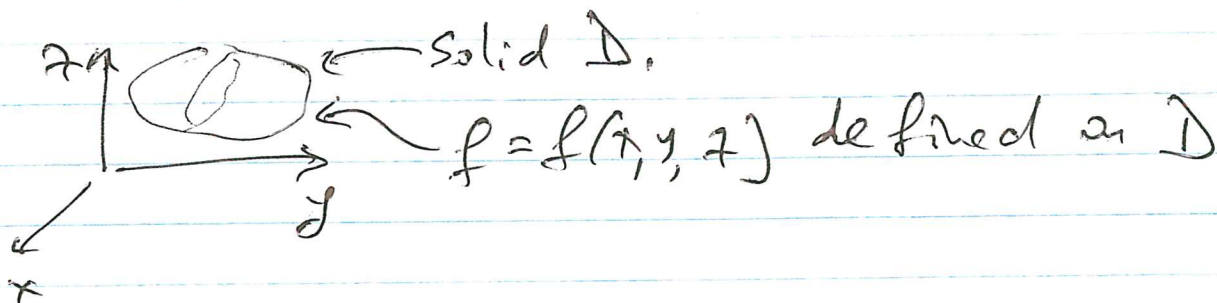 z
Solid D.
f = f(x, y, z) defined on D
y
x